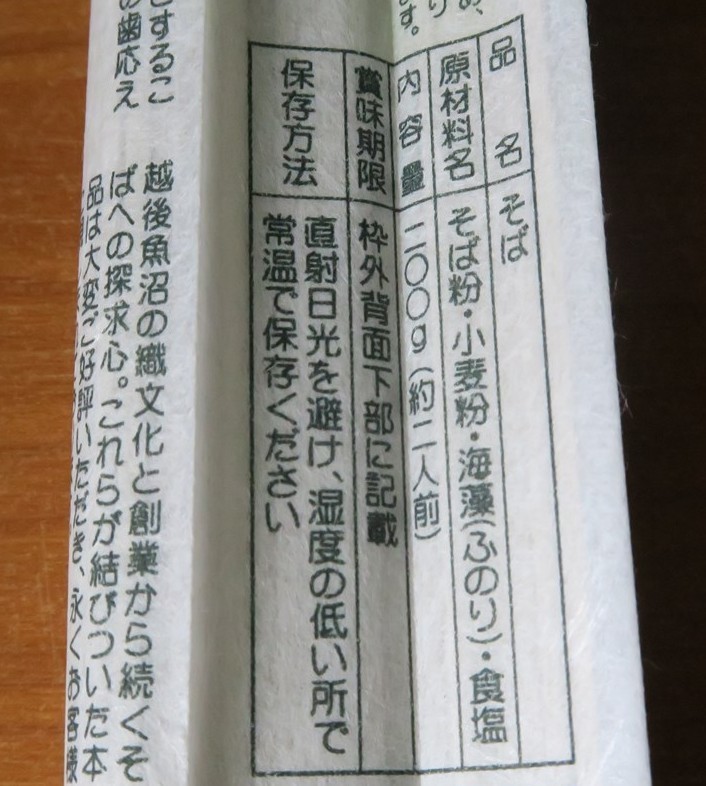 品名 そば
原材料名 そば粉・小麦粉・海藻(ふのり)・食塩
内容量 二〇〇g(約二人前)
賞味期限 枠外背面下部に記載
保存方法 直射日光を避け、湿度の低い所で
常温で保存ください
とするこ
の歯応え
越後魚沼の織文化と創業から続くそ
ばへの探求心。これらが結びついた本
品は大変ご好評いただき、永くお客様